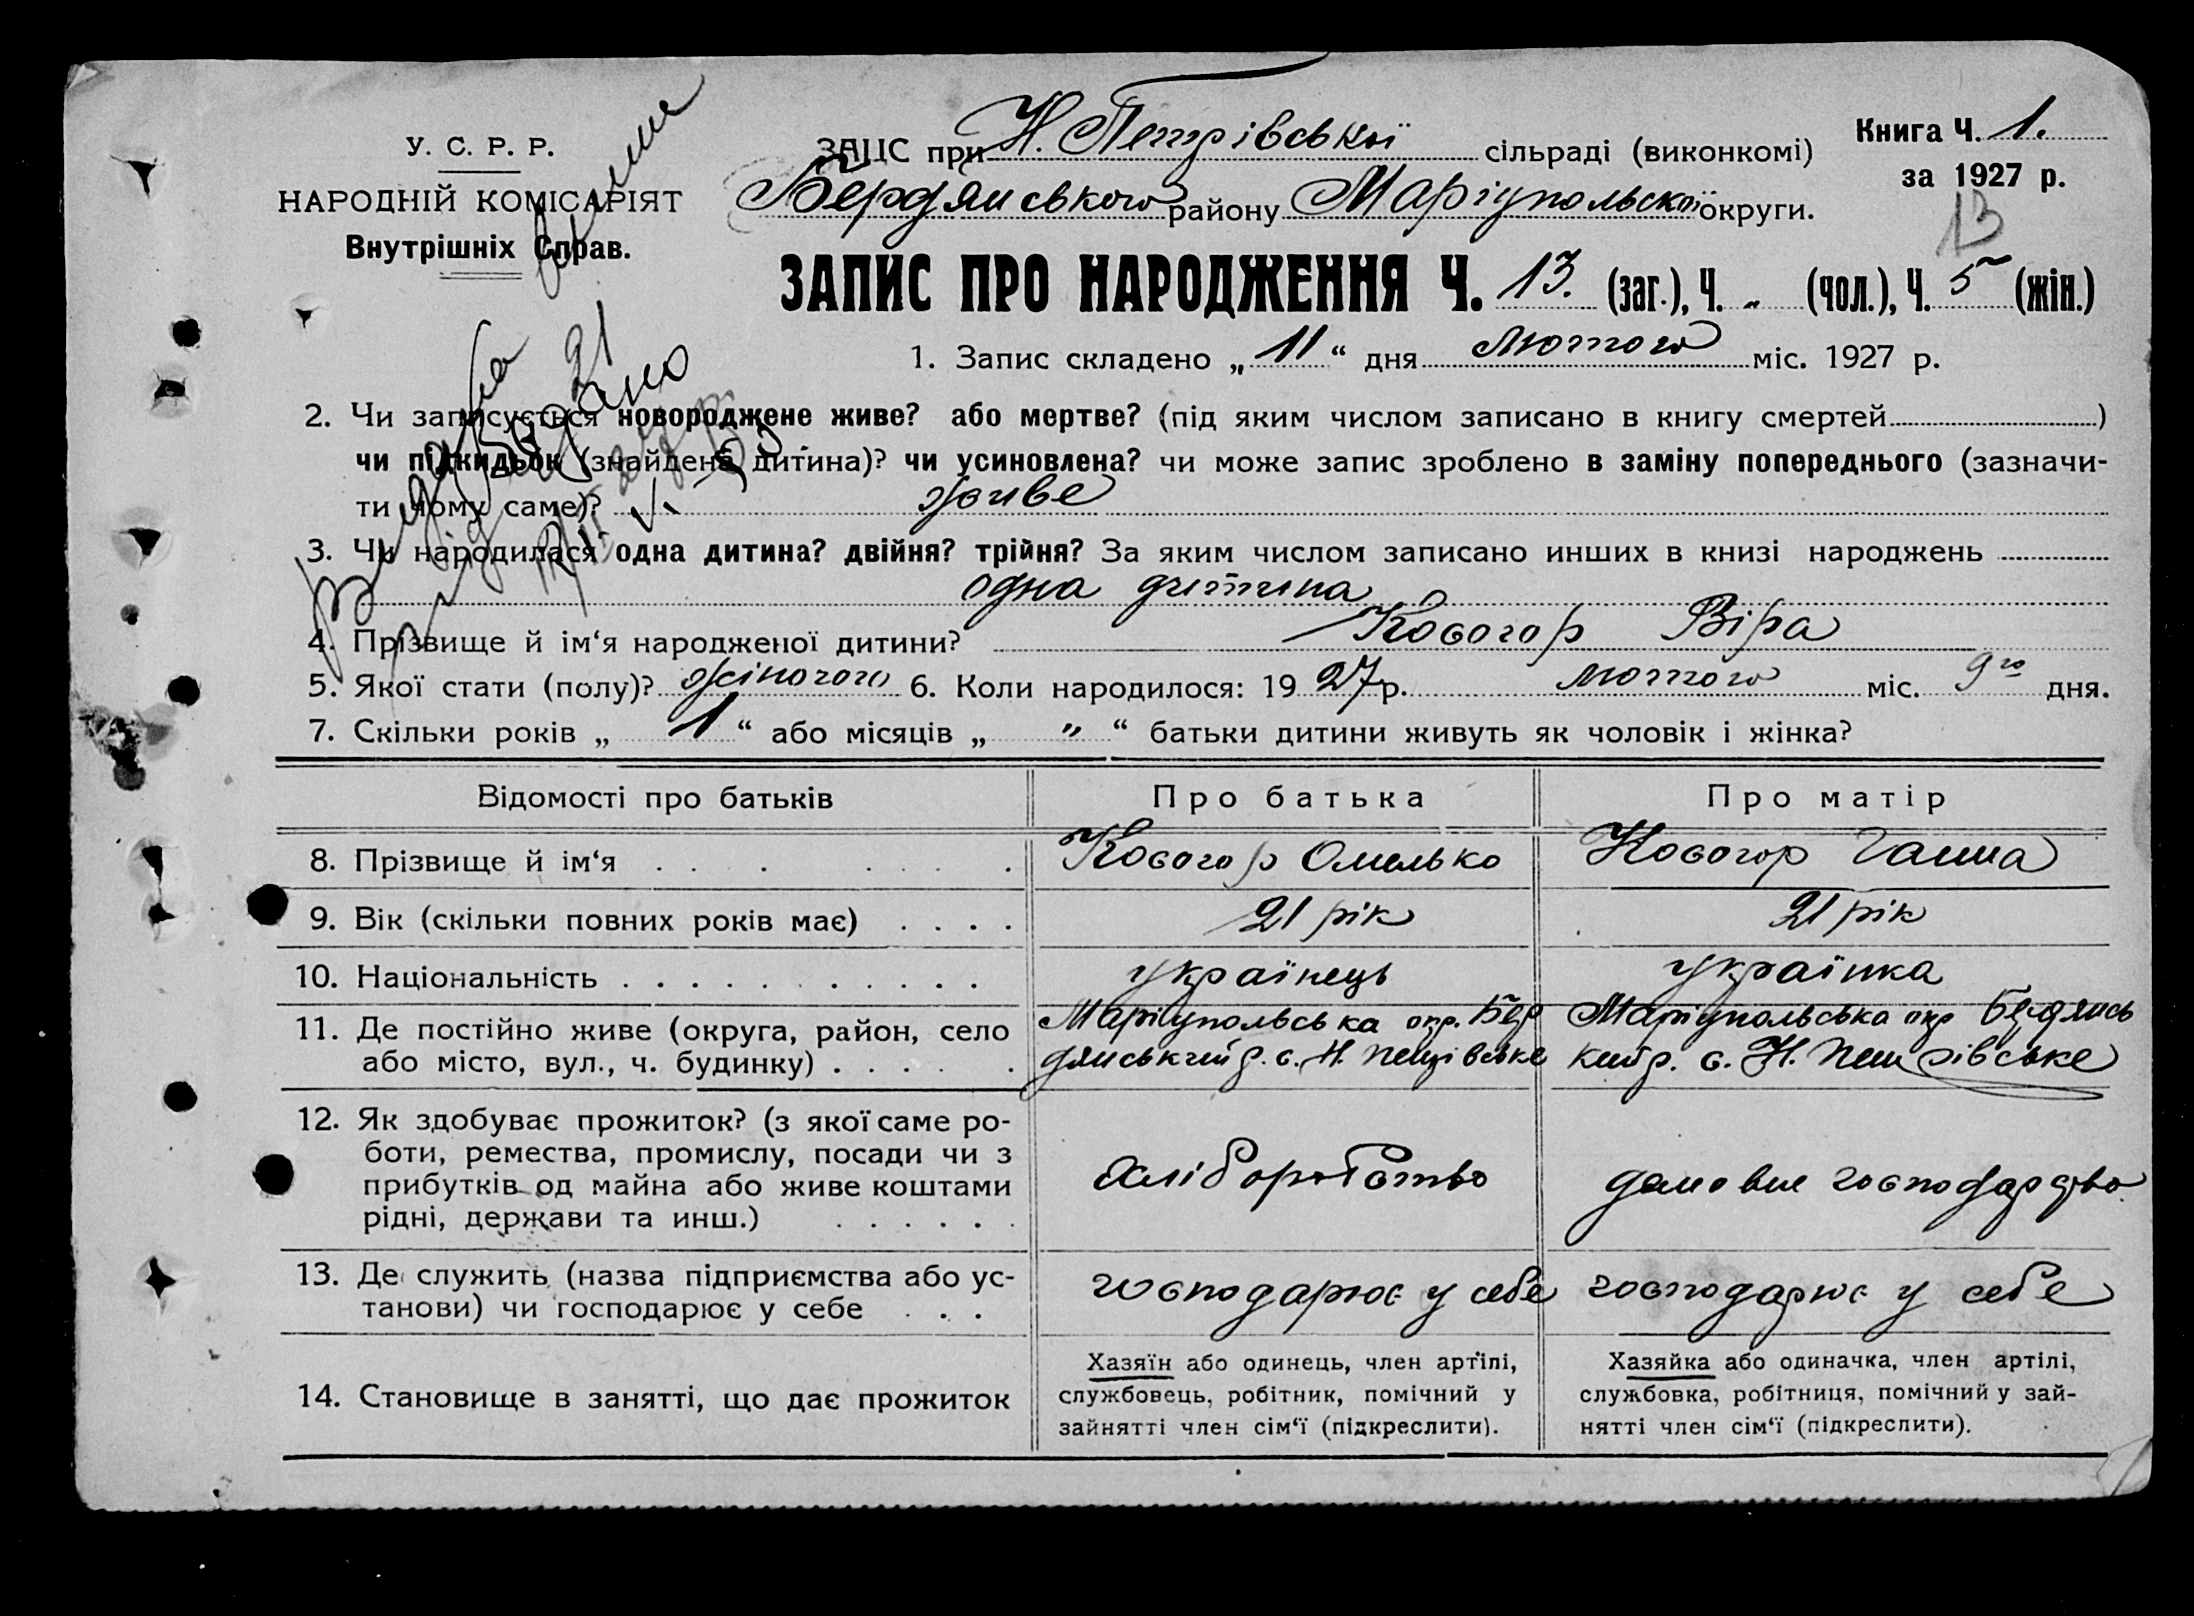 У. С. Р. Р.
НАРОДНІЙ КОМІСАРІЯТ
Внутрішніх Справ.
ЗАЦС при Н. Петрівської сільраді (виконкомі)
Бердянського району Маріупольскої округи.
Книга Ч. 1.
за 1927 р.
13
ЗАПИС ПРО НАРОДЖЕННЯ Ч. 13. (заг.), Ч. „ (чол.), Ч. 5 (жін.)
1. Запис складено „ 11 “ дня лютого міс. 1927 р.
2. Чи записується новороджене живе? або мертве? (під яким числом записано в книгу смертей )
чи підкидьок (знайдена дитина)? чи усиновлена? чи може запис зроблено в заміну попереднього (зазначи-
ти чому саме)? живе
3. Чи народилася одна дитина? двійня? трійня? За яким числом записано инших в книзі народжень
одна дитина
4. Прізвище й ім‘я народженої дитини? Косогор Віра
5. Якої стати (полу)? жіночого 6. Коли народилося: 19 27 р. лютого міс. 9го дня.
7. Скільки років „ 1 “ або місяців „ „ “ батьки дитини живуть як чоловік і жінка?
Відомості про батьків Про батька Про матір
8. Прізвище й ім‘я Косогор Омелько Косогор Ганна
9. Вік (скільки повних років має) 21 рік 21 рік
10. Національність українець українка
11. Де постійно живе (округа, район, село Маріупольська окр. Бер Маріупольська окр Бердянсь
або місто, вул., ч. будинку) дянський р. с. Н. Петрівське кий р. с. Н. Петрівське
12. Як здобуває прожиток? (з якої саме ро-
боти, ремества, промислу, посади чи з
прибутків од майна або живе коштами
рідні, держави та инш.)
хліборобство домове господарство
13. Де служить (назва підприємства або ус-
танови) чи господарює у себе
господарює у себе господарює у себе
14. Становище в занятті, що дає прожиток
Хазяїн або одинець, член артілі,
службовець, робітник, помічний у
зайнятті член сім‘ї (підкреслити).
Хазяйка або одиначка, член артілі,
службовка, робітниця, помічний у зай-
нятті член сім‘ї (підкреслити).